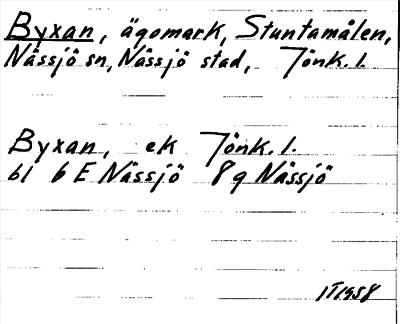 Byxan, ägomark, Stuntamålen,
Nässjö sn, Nässjö stad, Jönk. l.
Byxan, ek Jönk. l.
61 6 E Nässjö 8 g Nässjö
IT1958